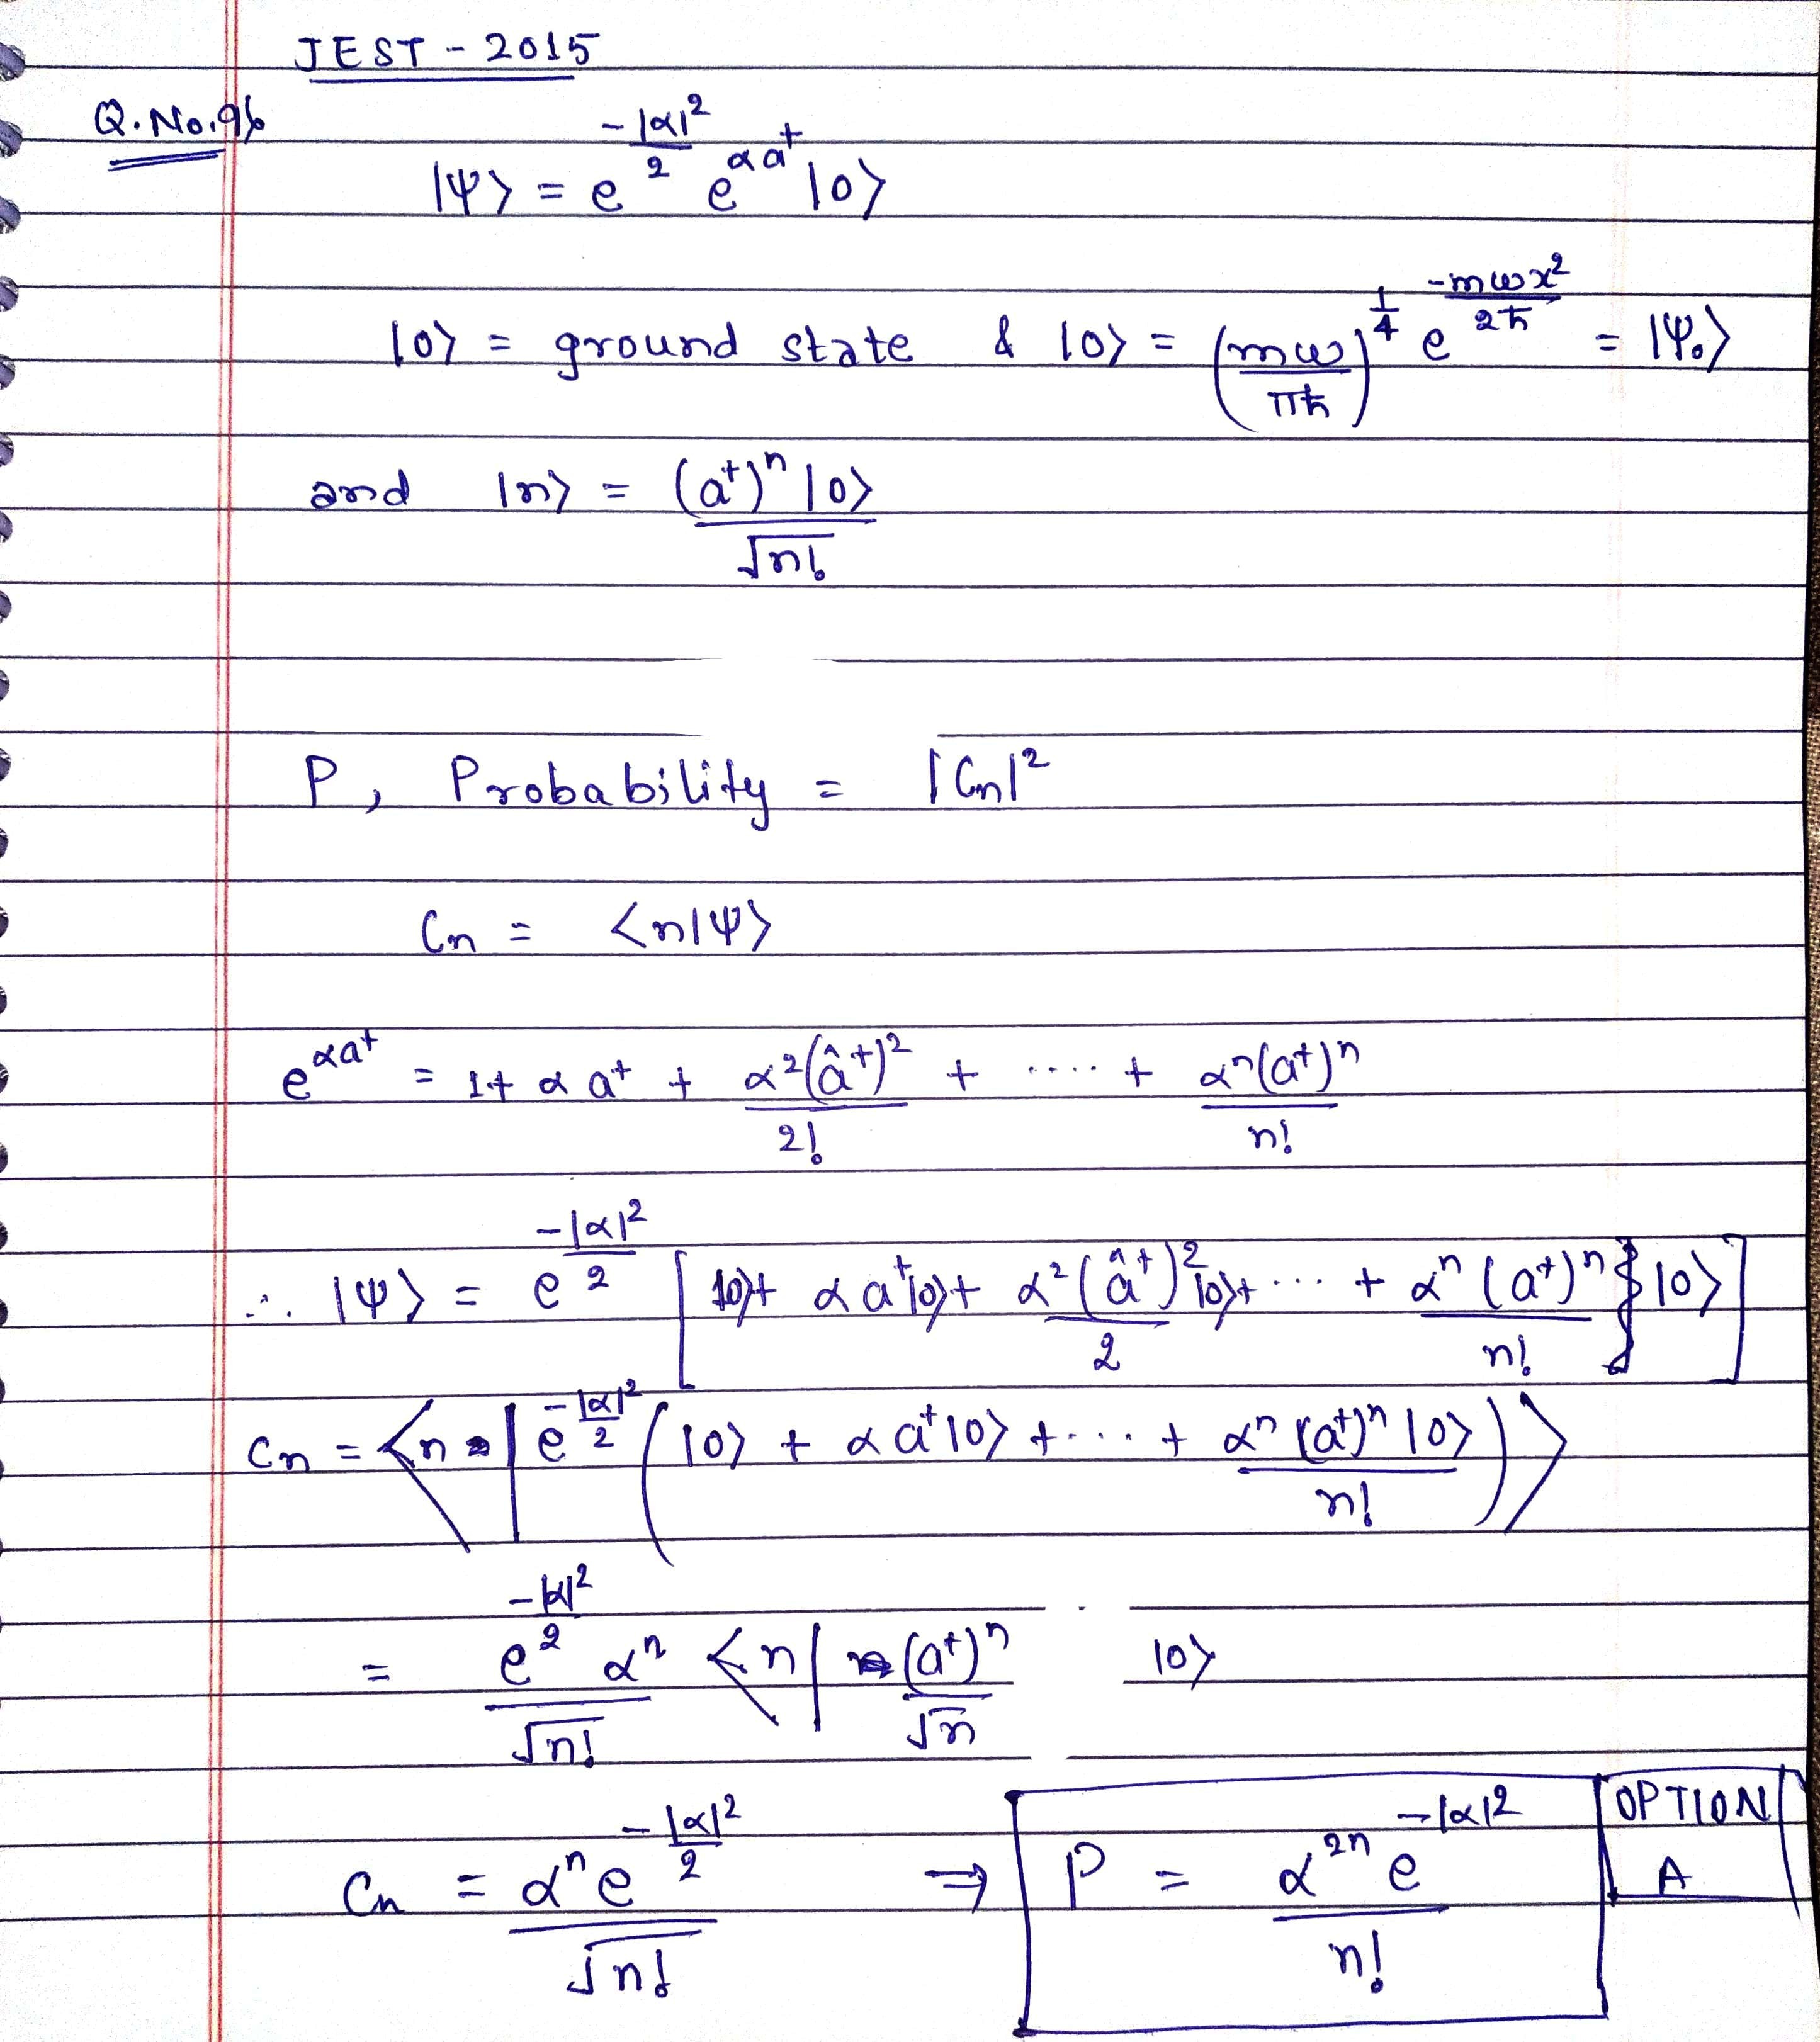 JEST - 2015
Q. No. 96
|ψ⟩ = e^{-|α|²/2} e^{αa†} |0⟩
|0⟩ = ground state & |0⟩ = (mω/πħ)^{1/4} e^{-mωx²/2ħ} = |ψ₀⟩
and |n⟩ = (a†)ⁿ|0⟩/√n!
P, Probability = |Cn|²
Cn = ⟨n|ψ⟩
e^{αa†} = 1 + α a† + α²(â†)²/2! + ..... + αⁿ(a†)ⁿ/n!
∴ |ψ⟩ = e^{-|α|²/2} [ |0⟩ + α a†|0⟩ + α²(â†)²|0⟩/2 + ... + αⁿ(a†)ⁿ/n! |0⟩ ]
Cn = ⟨n | e^{-|α|²/2} ( |0⟩ + α a†|0⟩ + .... + αⁿ(a†)ⁿ|0⟩/n! ) ⟩
= e^{-|α|²/2} αⁿ/√n! ⟨n | (a†)ⁿ/√n |0⟩
Cn = αⁿ e^{-|α|²/2}/√n! ⇒ P = α²ⁿ e^{-|α|²}/n!
OPTION
A